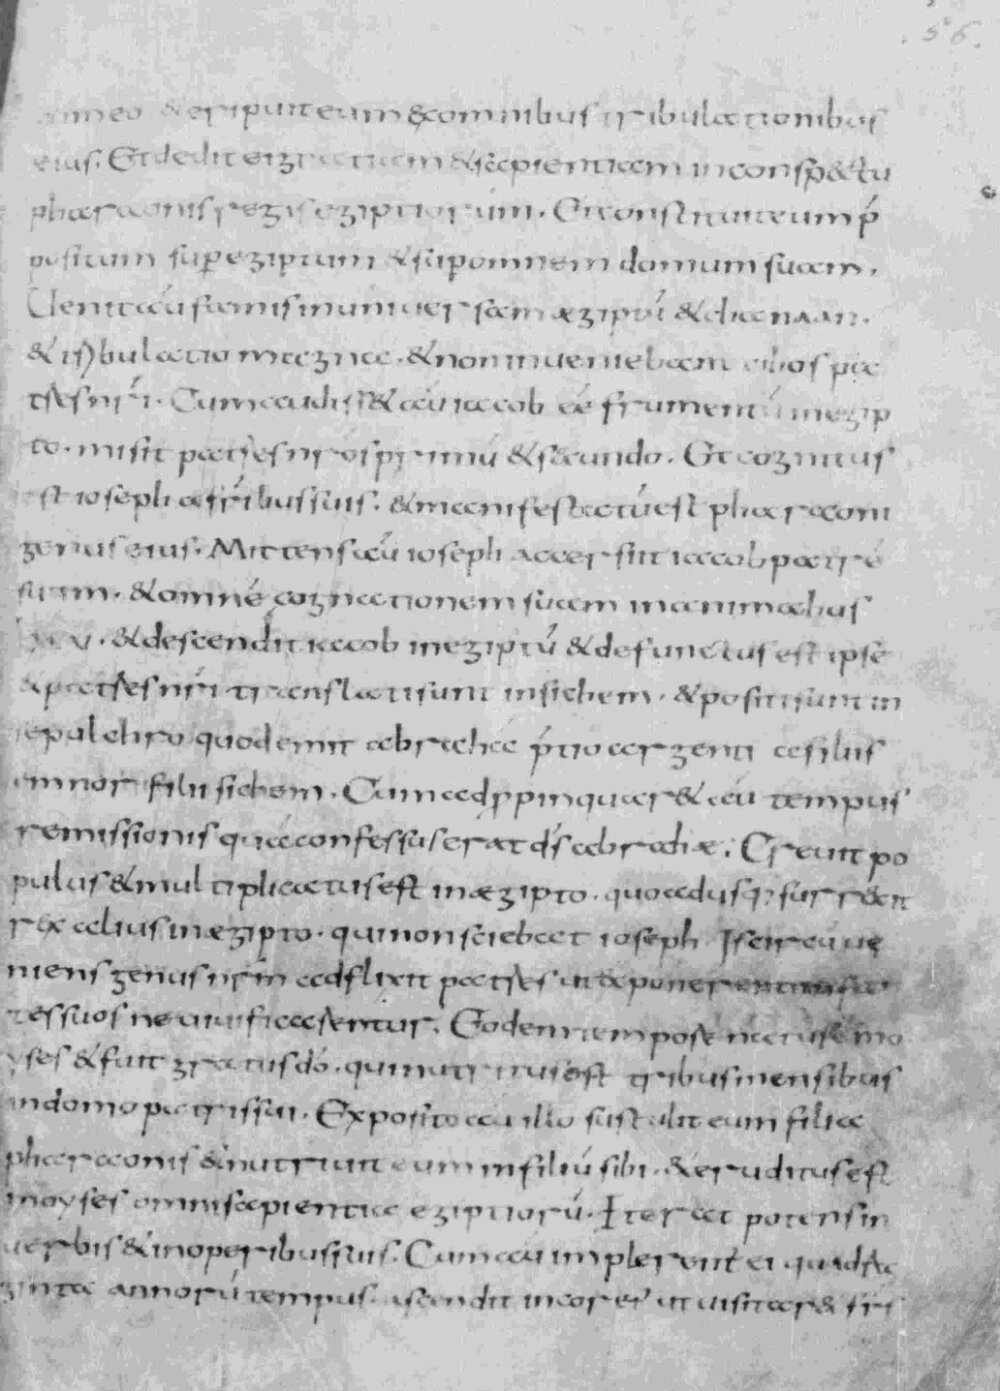 56.
cum eo & eripuit eum & omnibus tribulationibus
eius. Et dedit ei gratiam & sapientiam in conspectu
pharaonis regis egiptiorum. Et constituit eum p̄
positum sup̄ egiptum & sup̄ omnem domum suam.
Uenit aū famis in uniuersam ægiptū & chanaan.
& tribulatio magna. & non inueniebam cibos pa
tres nr̄i. Cum audiss& aū iacob eē frumentū in egip
to. misit patres nr̄os primū & secundo. Et cognitus
est ioseph a fr̄ibus suis. & manifestatū est pharaoni
genus eius. Mittens aū ioseph accersiit iacob patrē
suum. & omnē cognationem suam in animabus
lxxv. & descendit iacob in egiptū & defunctus est ipse
& patres nr̄i translati sunt in sichem. & positi sunt in
sepulchro quod emit abrahā p̄tio argenti a filiis
emmor filii sichem. Cum adp̄pinquar& aū tempus
remissionis quā confessus erat d̄s abrahæ. Creuit po
pulus & multiplicatus est in ægipto. quoadusq; surrexit
rex alius in ægipto. qui non sciebat ioseph. Is circū ue
niens genus nr̄m adflixit patres ut exponerent infan
tes suos ne uiuificarentur. Eodem tempore natus ē mo
yses & fuit gratus dō. qui nutritus est tribus mensibus
in domo patris sui. Exposito aū illo sustulit eum filia
pharaonis & nutriuit eum in filiū sibi. & eruditus est
moyses omni sapientia egiptiorū. Et erat potens in
uerbis & in operibus suis. Cum aū impler&ur ei quadra
ginta annorū tempus. ascendit in cor eī ut uisitar& fr̄s